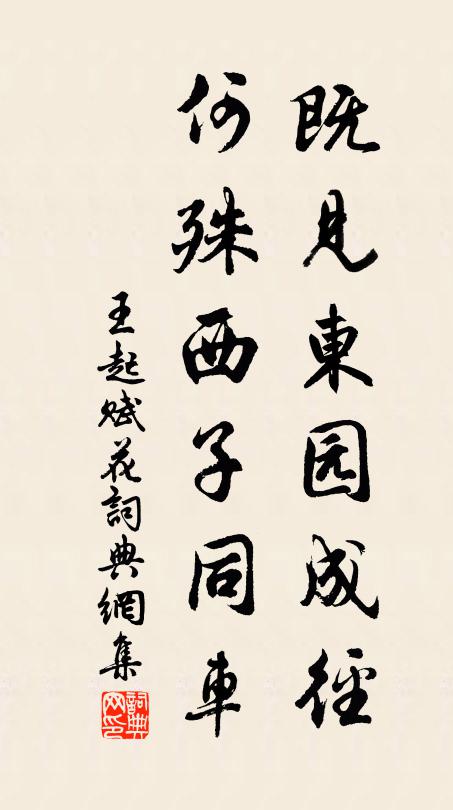 既見東园成徑
何殊西子同車
王起赋花詞典網集
詞典网印